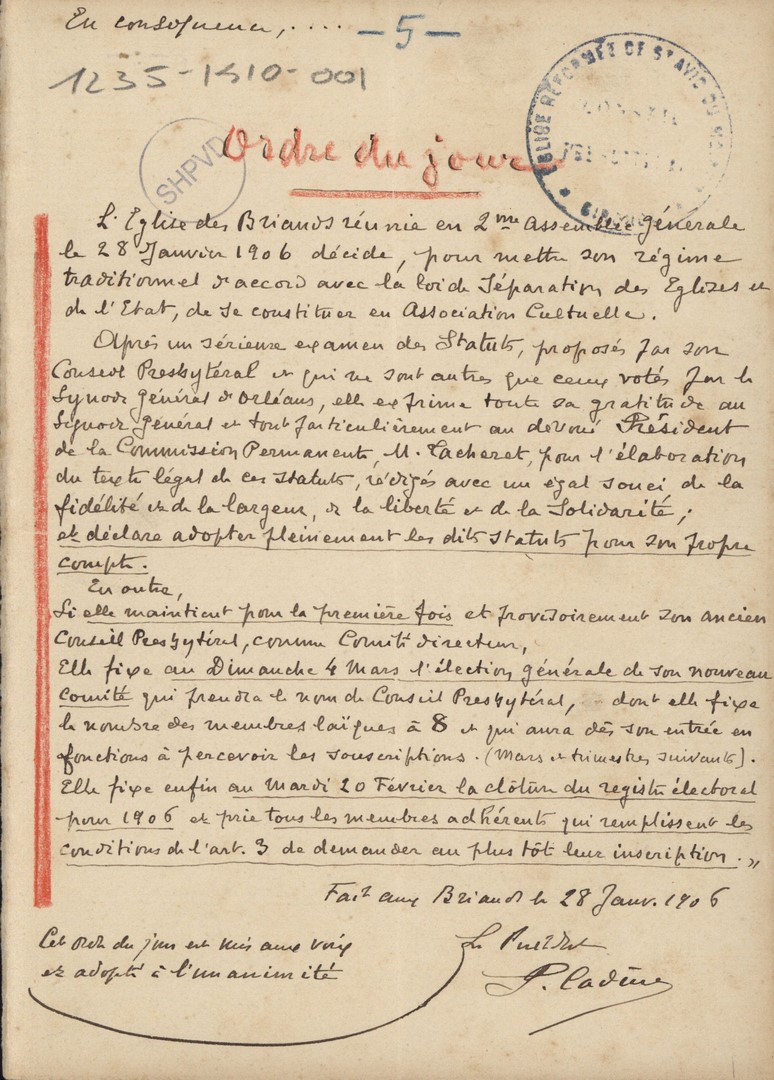 En conséquence, ....
— 5 —
1235-1910-001
SHPVD
EGLISE REFORMÉE DE ST AVIT DU
CONSEIL
Ordre du jour
L'Eglise des Briands réunie en 2me Assemblée générale
le 28 Janvier 1906 décide, pour mettre son régime
traditionnel d'accord avec la loi de Séparation des Eglises et
de l'Etat, de se constituer en Association Cultuelle.
Après un sérieux examen des Statuts, proposés par son
Conseil Presbytéral et qui ne sont autres que ceux votés par le
Synode général d'Orléans, elle exprime toute sa gratitude au
Synode Général et tout particulièrement au dévoué Président
de la Commission Permanente, M. Lacheret, pour l'élaboration
du texte légal de ces statuts, rédigés avec un égal souci de la
fidélité et de la largeur, de la liberté et de la Solidarité ;
et déclare adopter pleinement les dits statuts pour son propre
compte.
En outre,
Si elle maintient pour la première fois et provisoirement son ancien
Conseil Presbytéral, comme Comité directeur,
Elle fixe au Dimanche 4 Mars l'élection générale de son nouveau
Comité qui prendra le nom de Conseil Presbytéral, — dont elle fixe
le nombre des membres laïques à 8 et qui aura dès son entrée en
fonctions à percevoir les souscriptions. (Mars et trimestres suivants).
Elle fixe enfin au Mardi 20 Février la clôture du registre électoral
pour 1906 et prie tous les membres adhérents qui remplissent les
conditions de l'art. 3 de demander au plus tôt leur inscription. »
Fait aux Briands le 28 Janv. 1906
Cet ordre du jour est mis aux voix
et adopté à l'unanimité
Le Président
P. Cadène